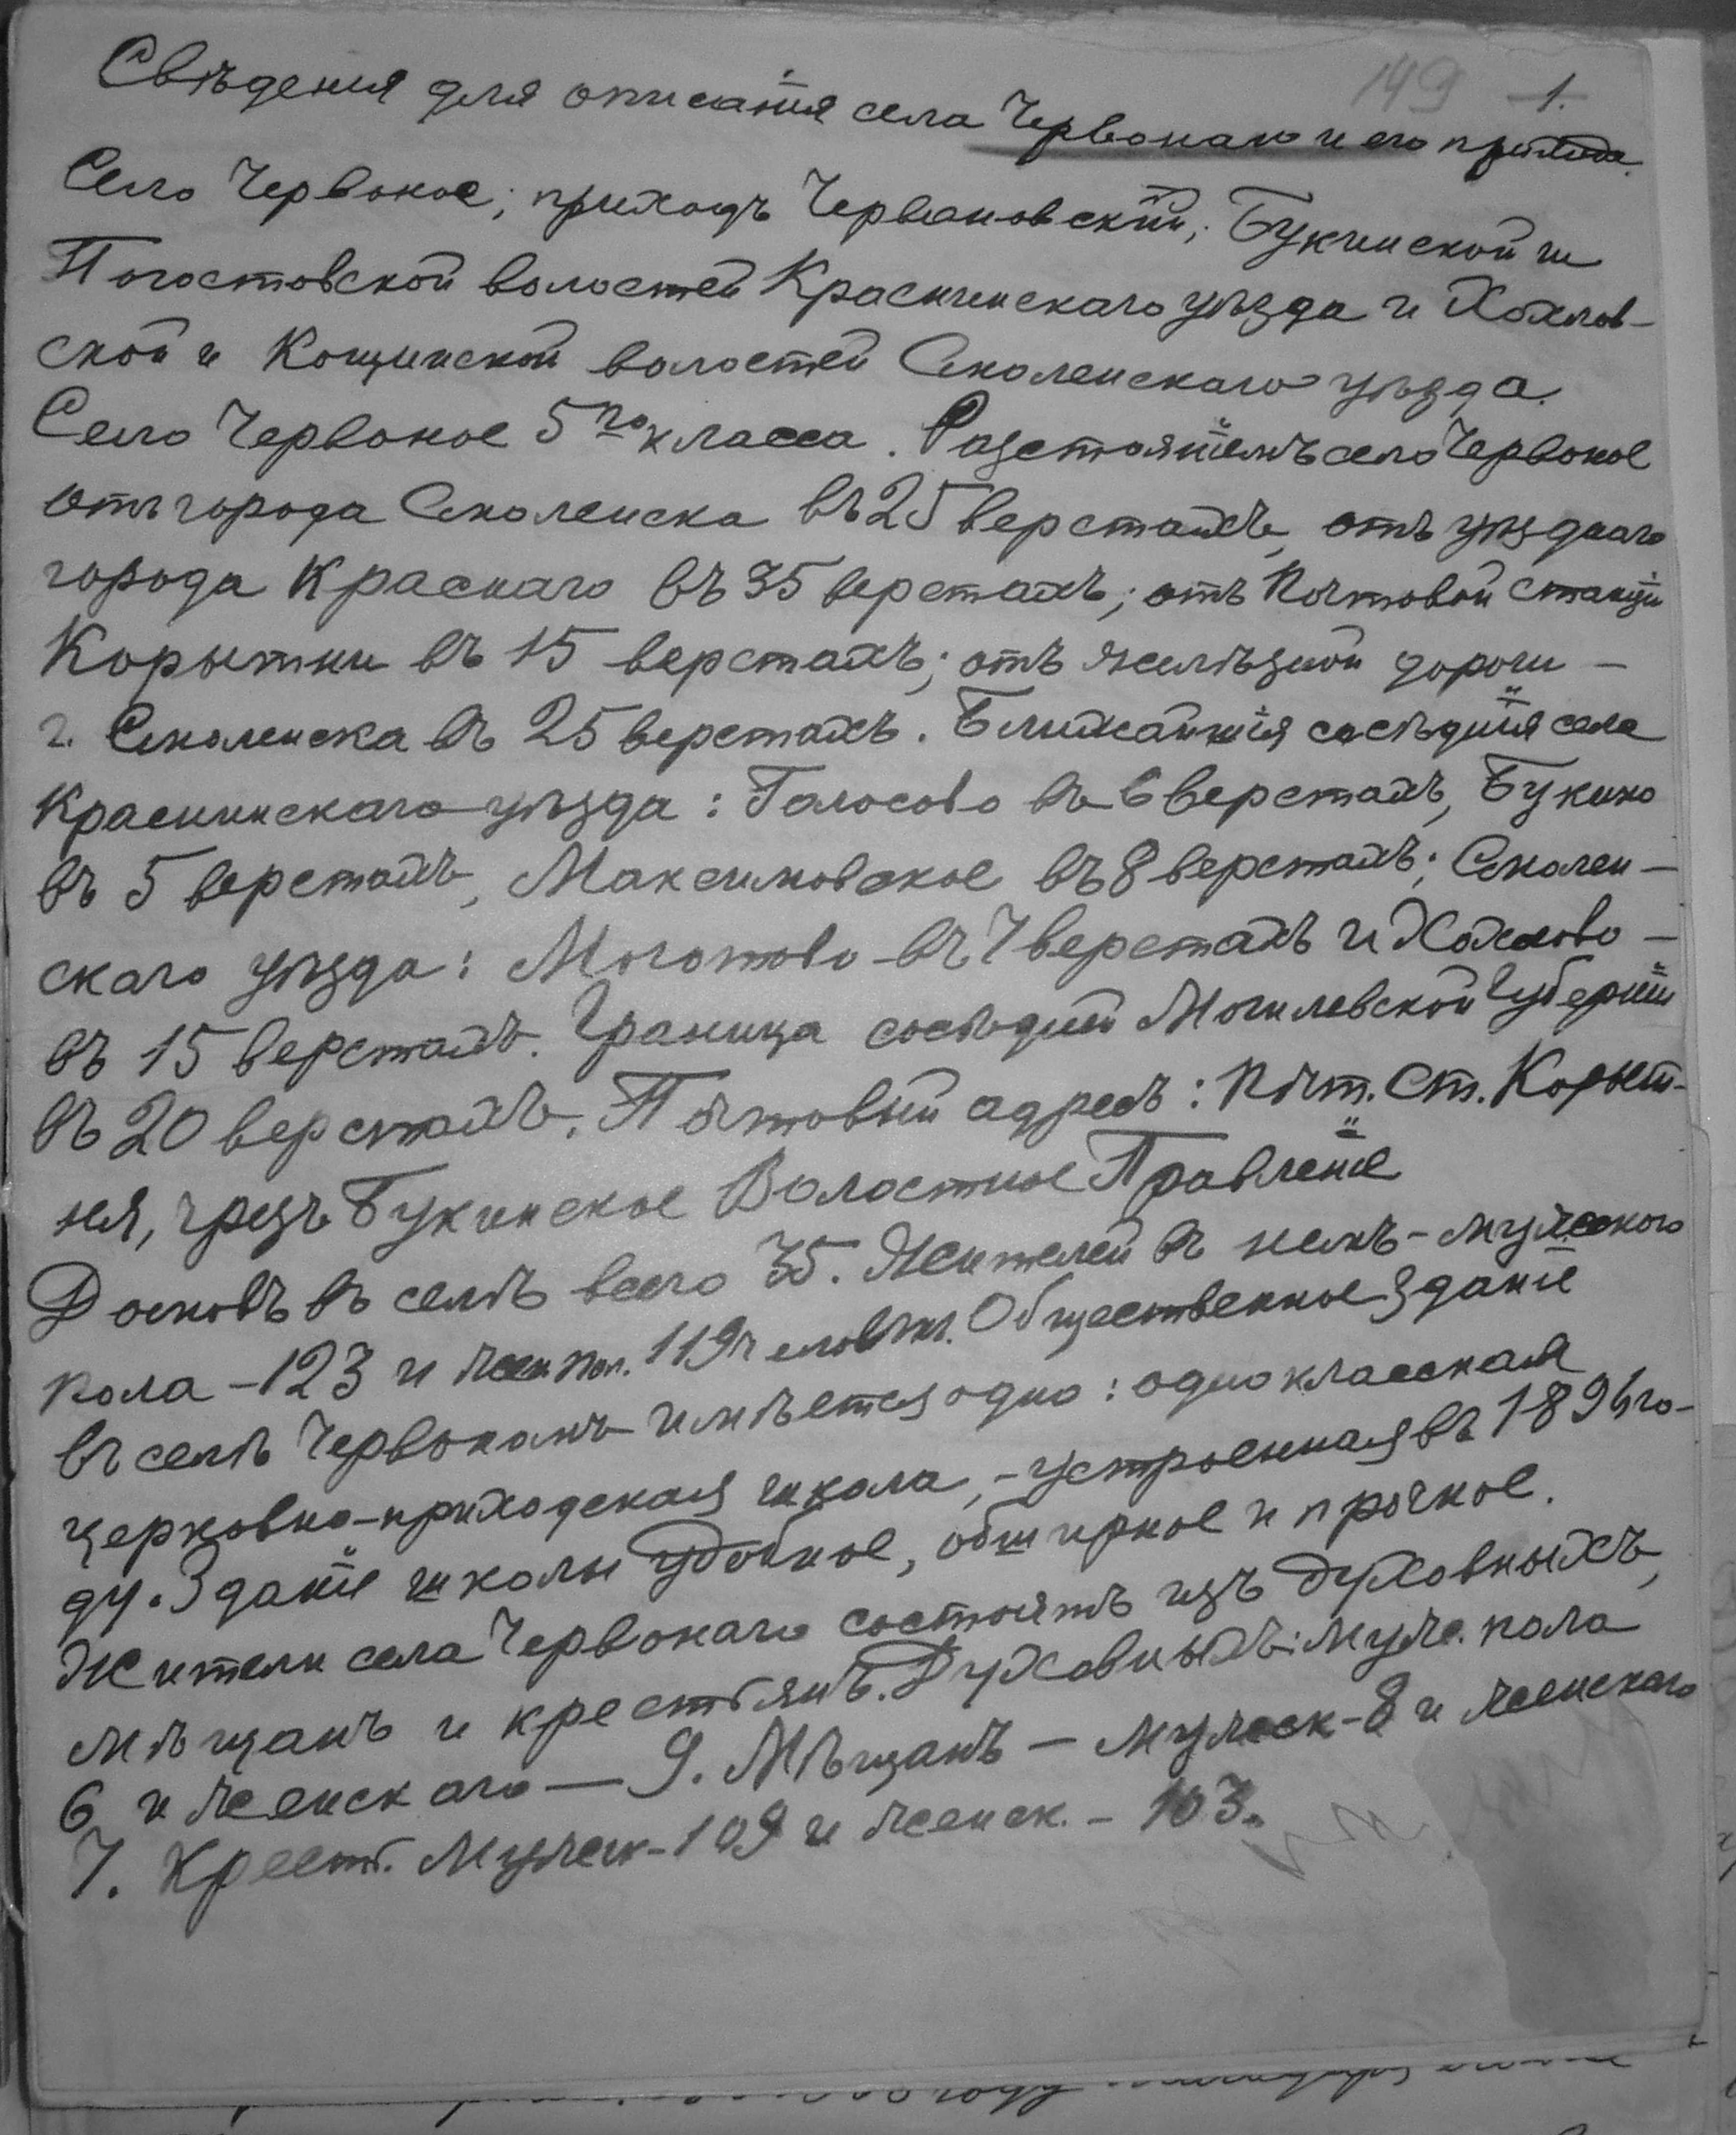 149 1.
Свѣдения для описанія села Червонаго и его прихода.
Село Червоное; приходъ Червоновскій; Букинской и
Погостовской волостей Краснинскаго уѣзда и Хохлов-
ской и Кощинской волостей Смоленскаго уѣзда.
Село Червоное 5го класса. Разстояніемъ село Червоное
отъ города Смоленска въ 25 верстахъ, отъ уѣзднаго
города Краснаго въ 35 верстахъ; отъ почтовой станціи
Корытни въ 15 верстахъ; отъ желѣзной дороги –
г. Смоленска въ 25 верстахъ. Ближайшія сосѣднія села
Краснинскаго уѣзда: Голосово въ 6 верстахъ, Букино
въ 5 верстахъ, Максимовское въ 8 верстахъ; Смолен-
скаго уѣзда: Моготово въ 7 верстахъ и Хохлово –
въ 15 верстахъ. Граница сосѣдней Могилевской Губерніи
въ 20 верстахъ. Почтовый адресъ: Почт. Ст. Корыт-
ня, чрезъ Букинское Волостное Правленіе
Домовъ въ селѣ всего 35. Жителей въ немъ – мужеского
пола – 123 и жен. пол. 119 человѣк. Общественное зданіе
въ селѣ Червономъ имѣется одно: одноклассная
церковно-приходская школа, – устроенная въ 1896 го-
ду. Зданіе школы удобное, обширное и прочное.
Жители села Червонаго состоятъ изъ духовныхъ,
мѣщанъ и крестьянъ. Духовныхъ: муже. пола
6 и женскаго – 9. Мѣщанъ – мужеск – 8 и женскаго
7. Крест. мужеск – 109 и женск. – 103.